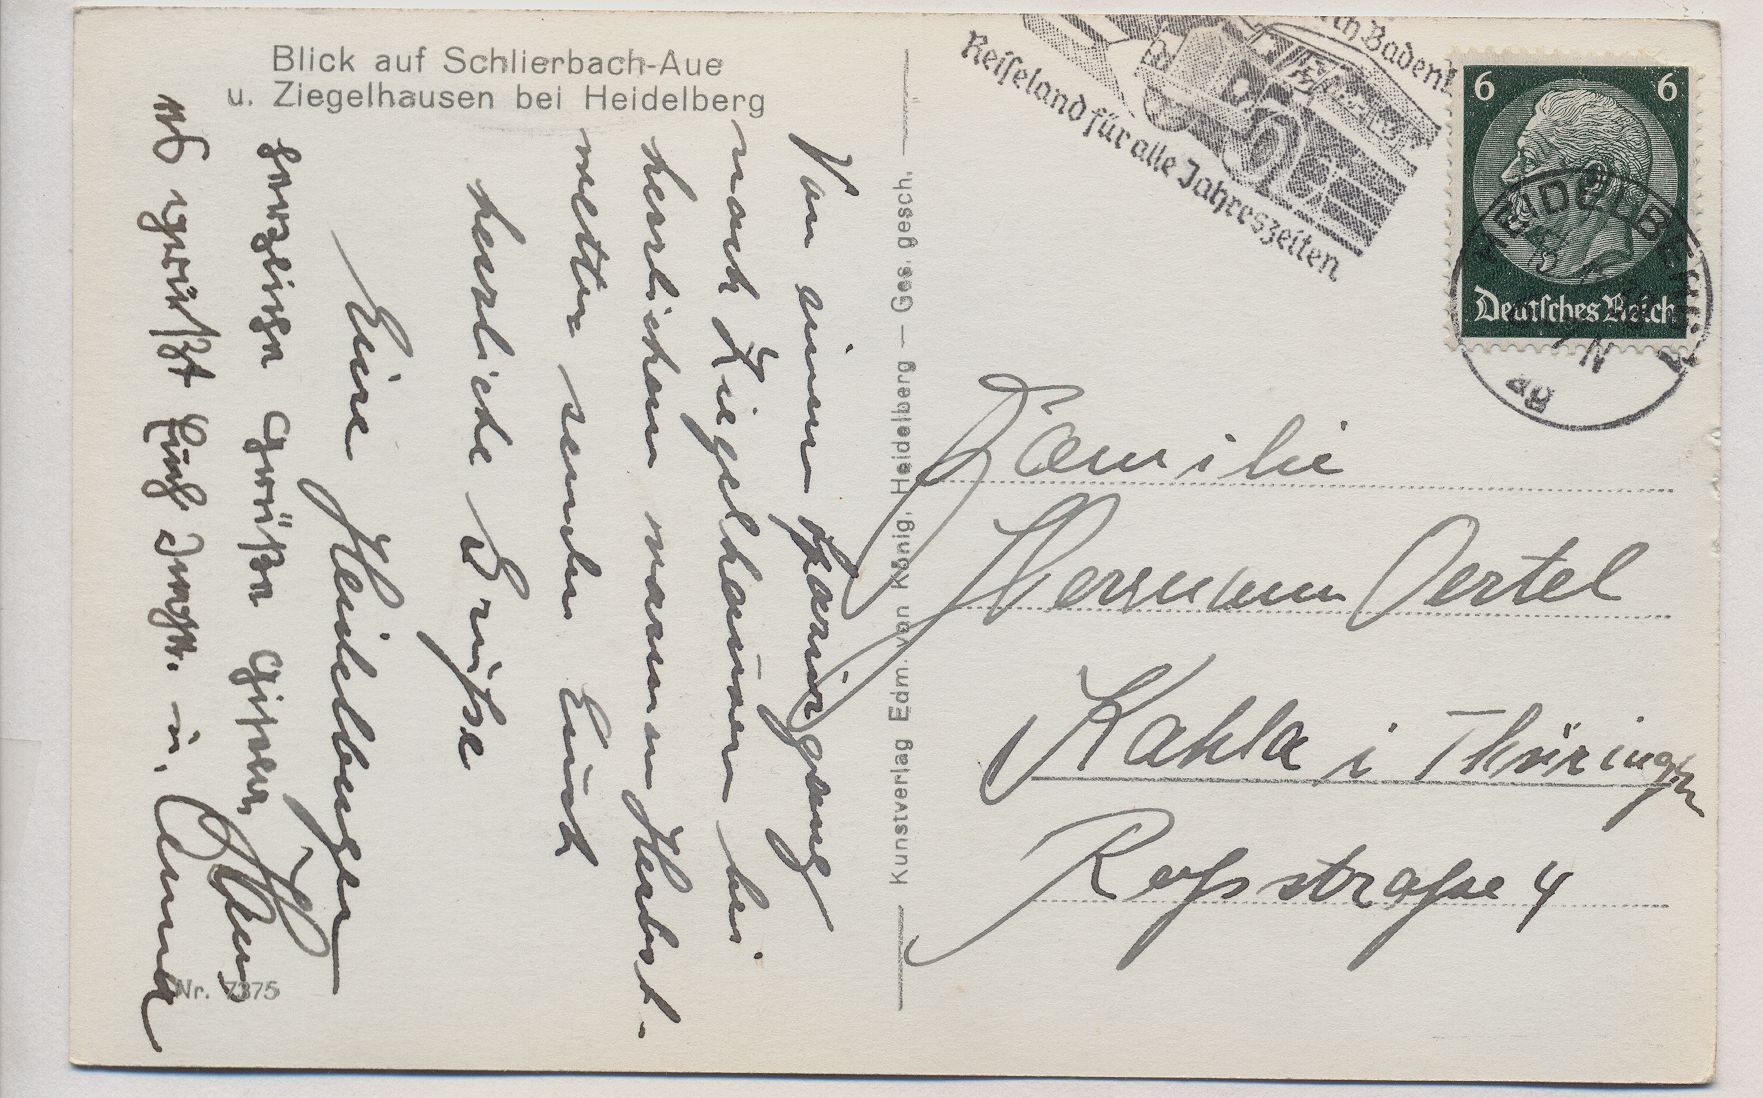 Blick auf Schlierbach-Aue
u. Ziegelhausen bei Heidelberg
Von einem Spaziergang
nach Ziegelhausen bei
herrlichem warmen Herbst-
wetter senden Euch
herzliche Grüsse
Eure Heidelberger
Herzliche Grüße
Hans
Es grüßt Euch u. Anna
Nr. 7375
Kunstverlag Edm. von König, Heidelberg — Ges. gesch.
Baden!
Reiseland für alle Jahreszeiten
6 6
Deutsches Reich
HEIDELBERG
Familie
Hermann Oertel
Kahla i Thüringen
Roßstraße 4